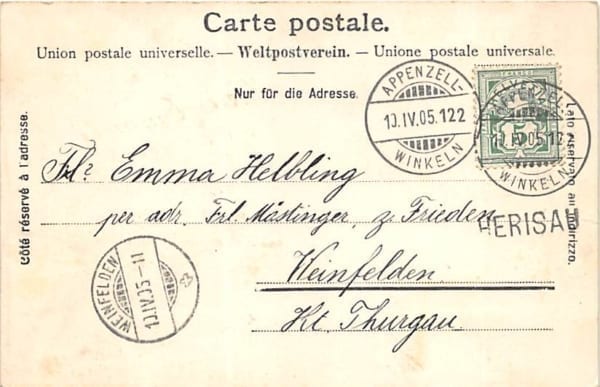 Carte postale.
Union postale universelle. — Weltpostverein. — Unione postale universale.
Nur für die Adresse.
Côté réservé à l'adresse.
Lato riservato all'indirizzo.
APPENZELL-
10.IV.05.122
WINKELN
FRANCO
HELVETIA
5
APPENZELL-
10.IV.05.122
WINKELN
Frl. Emma Helbling
per adr. Frl. Mästinger, z. Frieden
HERISAU
Weinfelden
Kt. Thurgau
WEINFELDEN
10.IV.05-11